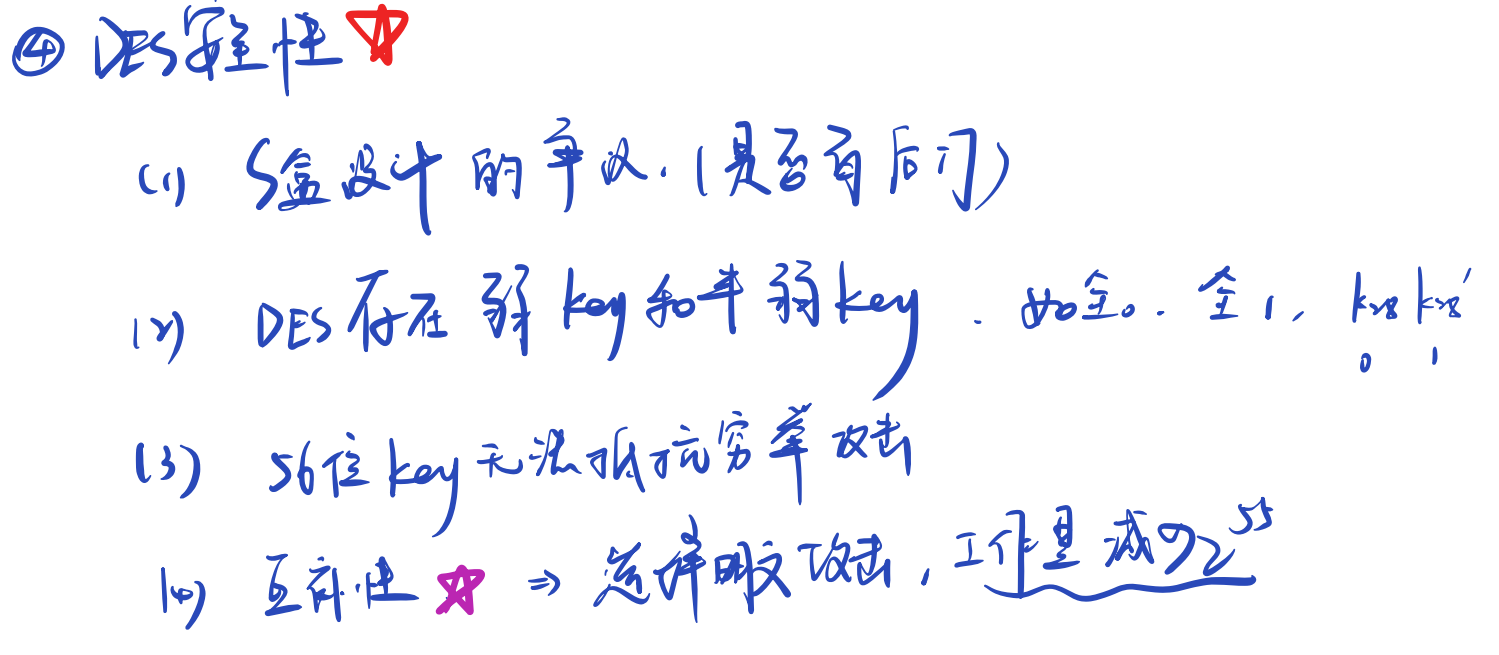 ④ DES安全性
(1) S盒设计的争议.(是否有后门)
(2) DES存在弱key和半弱key. 如全0.全1, k28 k28'
0 1
(3) 56位key无法抵抗穷举攻击
(4) 互补性 ⇒ 选择明文攻击, 工作量减为2^55